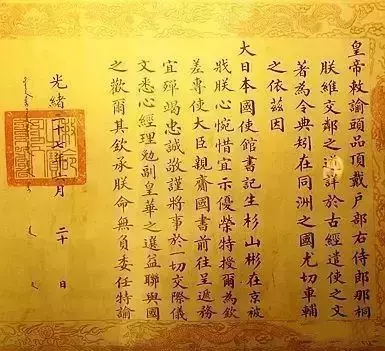 皇帝敕諭頭品頂戴戶部右侍郎那桐
朕維交鄰之道詳於古經遣使之文
著為令典矧在同洲之國尤切車輔
之依茲因
大日本國使館書記生杉山彬在京被
戕朕心惋惜宜示優榮特授爾為欽
差專使大臣親齎國書前往呈遞務
宜殫竭忠誠敬謹將事於一切交際儀
文悉心經理勉副皇華之選益聯與國
之歡爾其欽承朕命無負委任特諭
光緒 十七年 月 二十 日